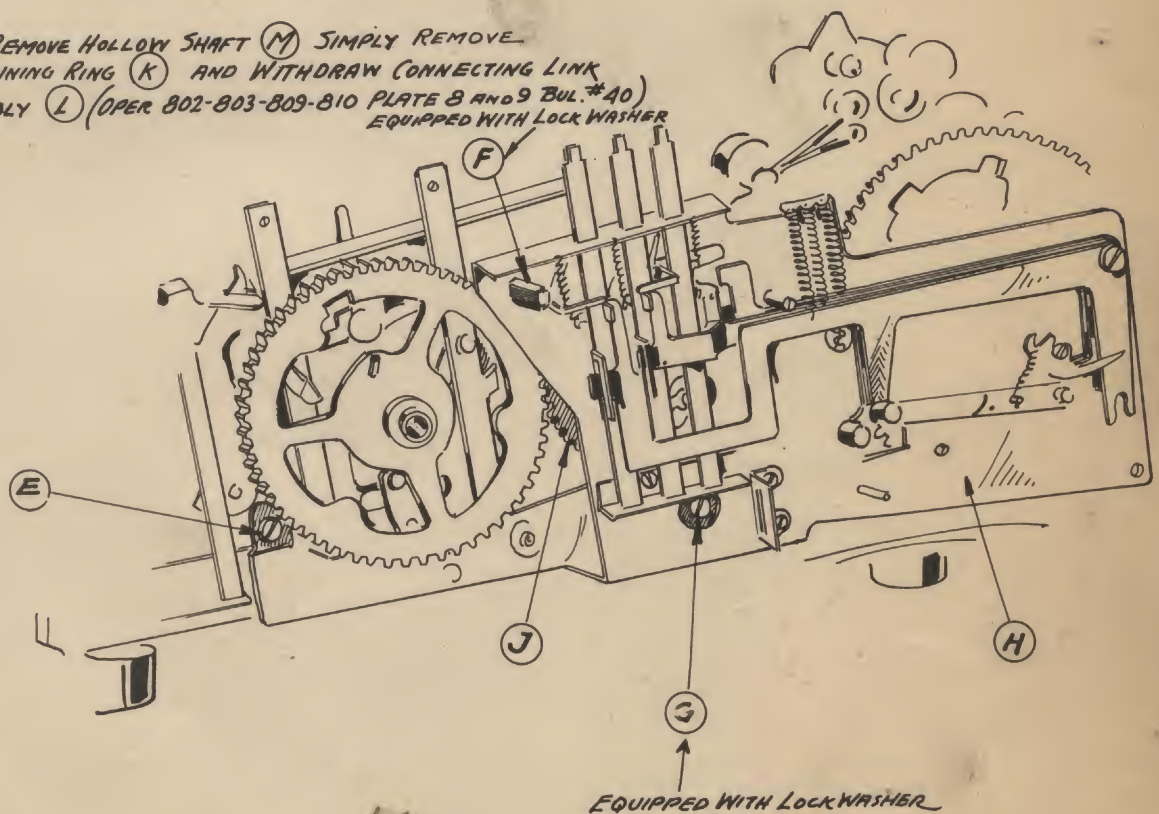 REMOVE HOLLOW SHAFT (M) SIMPLY REMOVE
INING RING (K) AND WITHDRAW CONNECTING LINK
BLY (L) (OPER 802-803-809-810 PLATE 8 AND 9 BUL. #40)
EQUIPPED WITH LOCK WASHER
F
E
J
H
G
EQUIPPED WITH LOCK WASHER